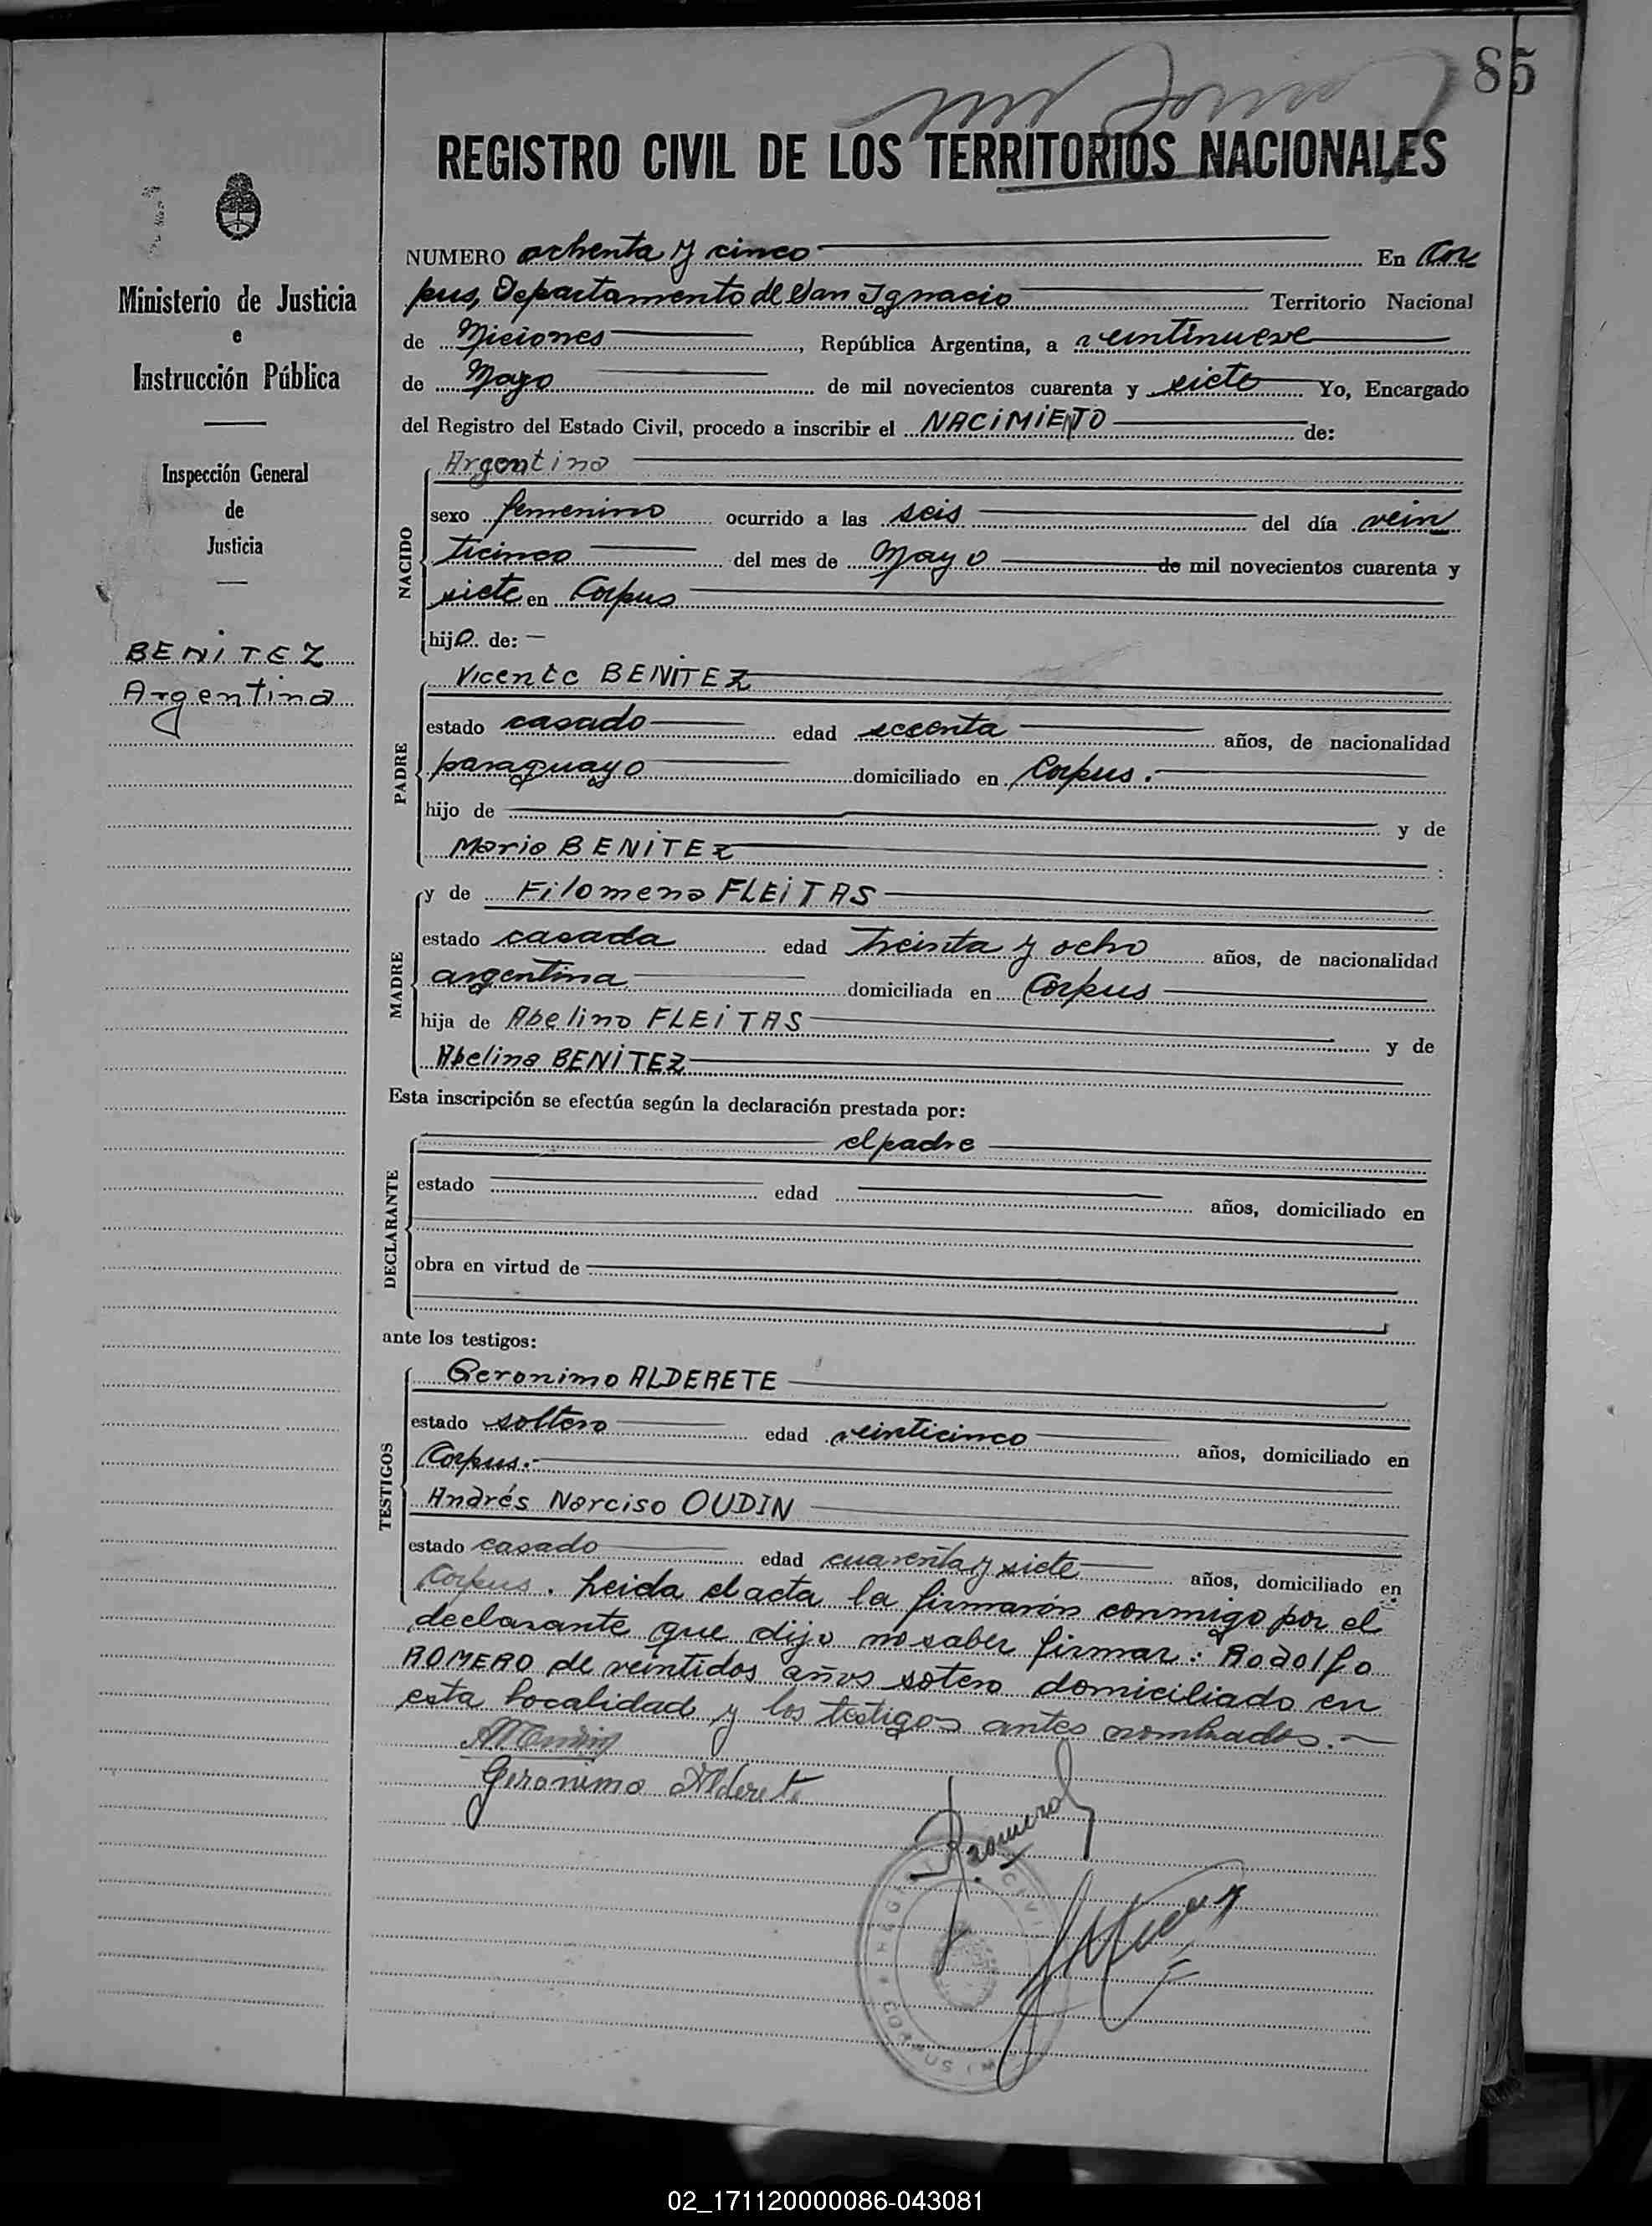 85
REGISTRO CIVIL DE LOS TERRITORIOS NACIONALES
Ministerio de Justicia
e
Instrucción Pública
Inspección General
de
Justicia
BENITEZ
Argentina
NUMERO ochenta y cinco En Cor
pus, Departamento de San Ignacio Territorio Nacional
de Miciones, República Argentina, a veintinueve
de Mayo de mil novecientos cuarenta y siete Yo, Encargado
del Registro del Estado Civil, procedo a inscribir el NACIMIENTO de:
NACIDO
Argentina
sexo femenino ocurrido a las seis del día vein
ticinco del mes de Mayo de mil novecientos cuarenta y
siete en Corpus
hija de:
PADRE
Vicente BENITEZ
estado casado edad secenta años, de nacionalidad
paraguayo domiciliado en Corpus.
hijo de y de
Maria BENITEZ
MADRE
y de Filomena FLEITAS
estado casada edad treinta y ocho años, de nacionalidad
argentina domiciliada en Corpus
hija de Abelino FLEITAS y de
Abelina BENITEZ
Esta inscripción se efectúa según la declaración prestada por:
DECLARANTE
el padre
estado edad años, domiciliado en
obra en virtud de
ante los testigos:
TESTIGOS
Geronimo ALDERETE
estado soltero edad veinticinco años, domiciliado en
Corpus.-
Andrés Narciso OUDIN
estado casado edad cuarenta y siete años, domiciliado en
Corpus. Leida el acta la firmaron conmigo por el
declarante que dijo no saber firmar: Rodolfo
ROMERO de veintidos años sotero domiciliado en
esta localidad y los testigos antes nombrados.-
Geronimo Alderete
02_171120000086-043081